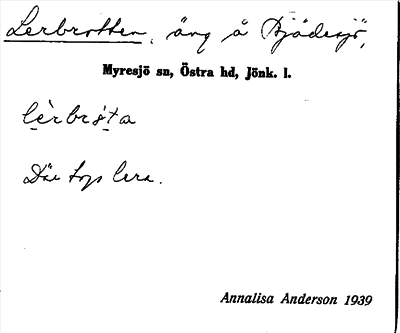 Lerbrotten, äng å Bjädesjö,
Myresjö sn, Östra hd, Jönk. l.
lèrbrȯ́ta
Där togs lera.
Annalisa Anderson 1939